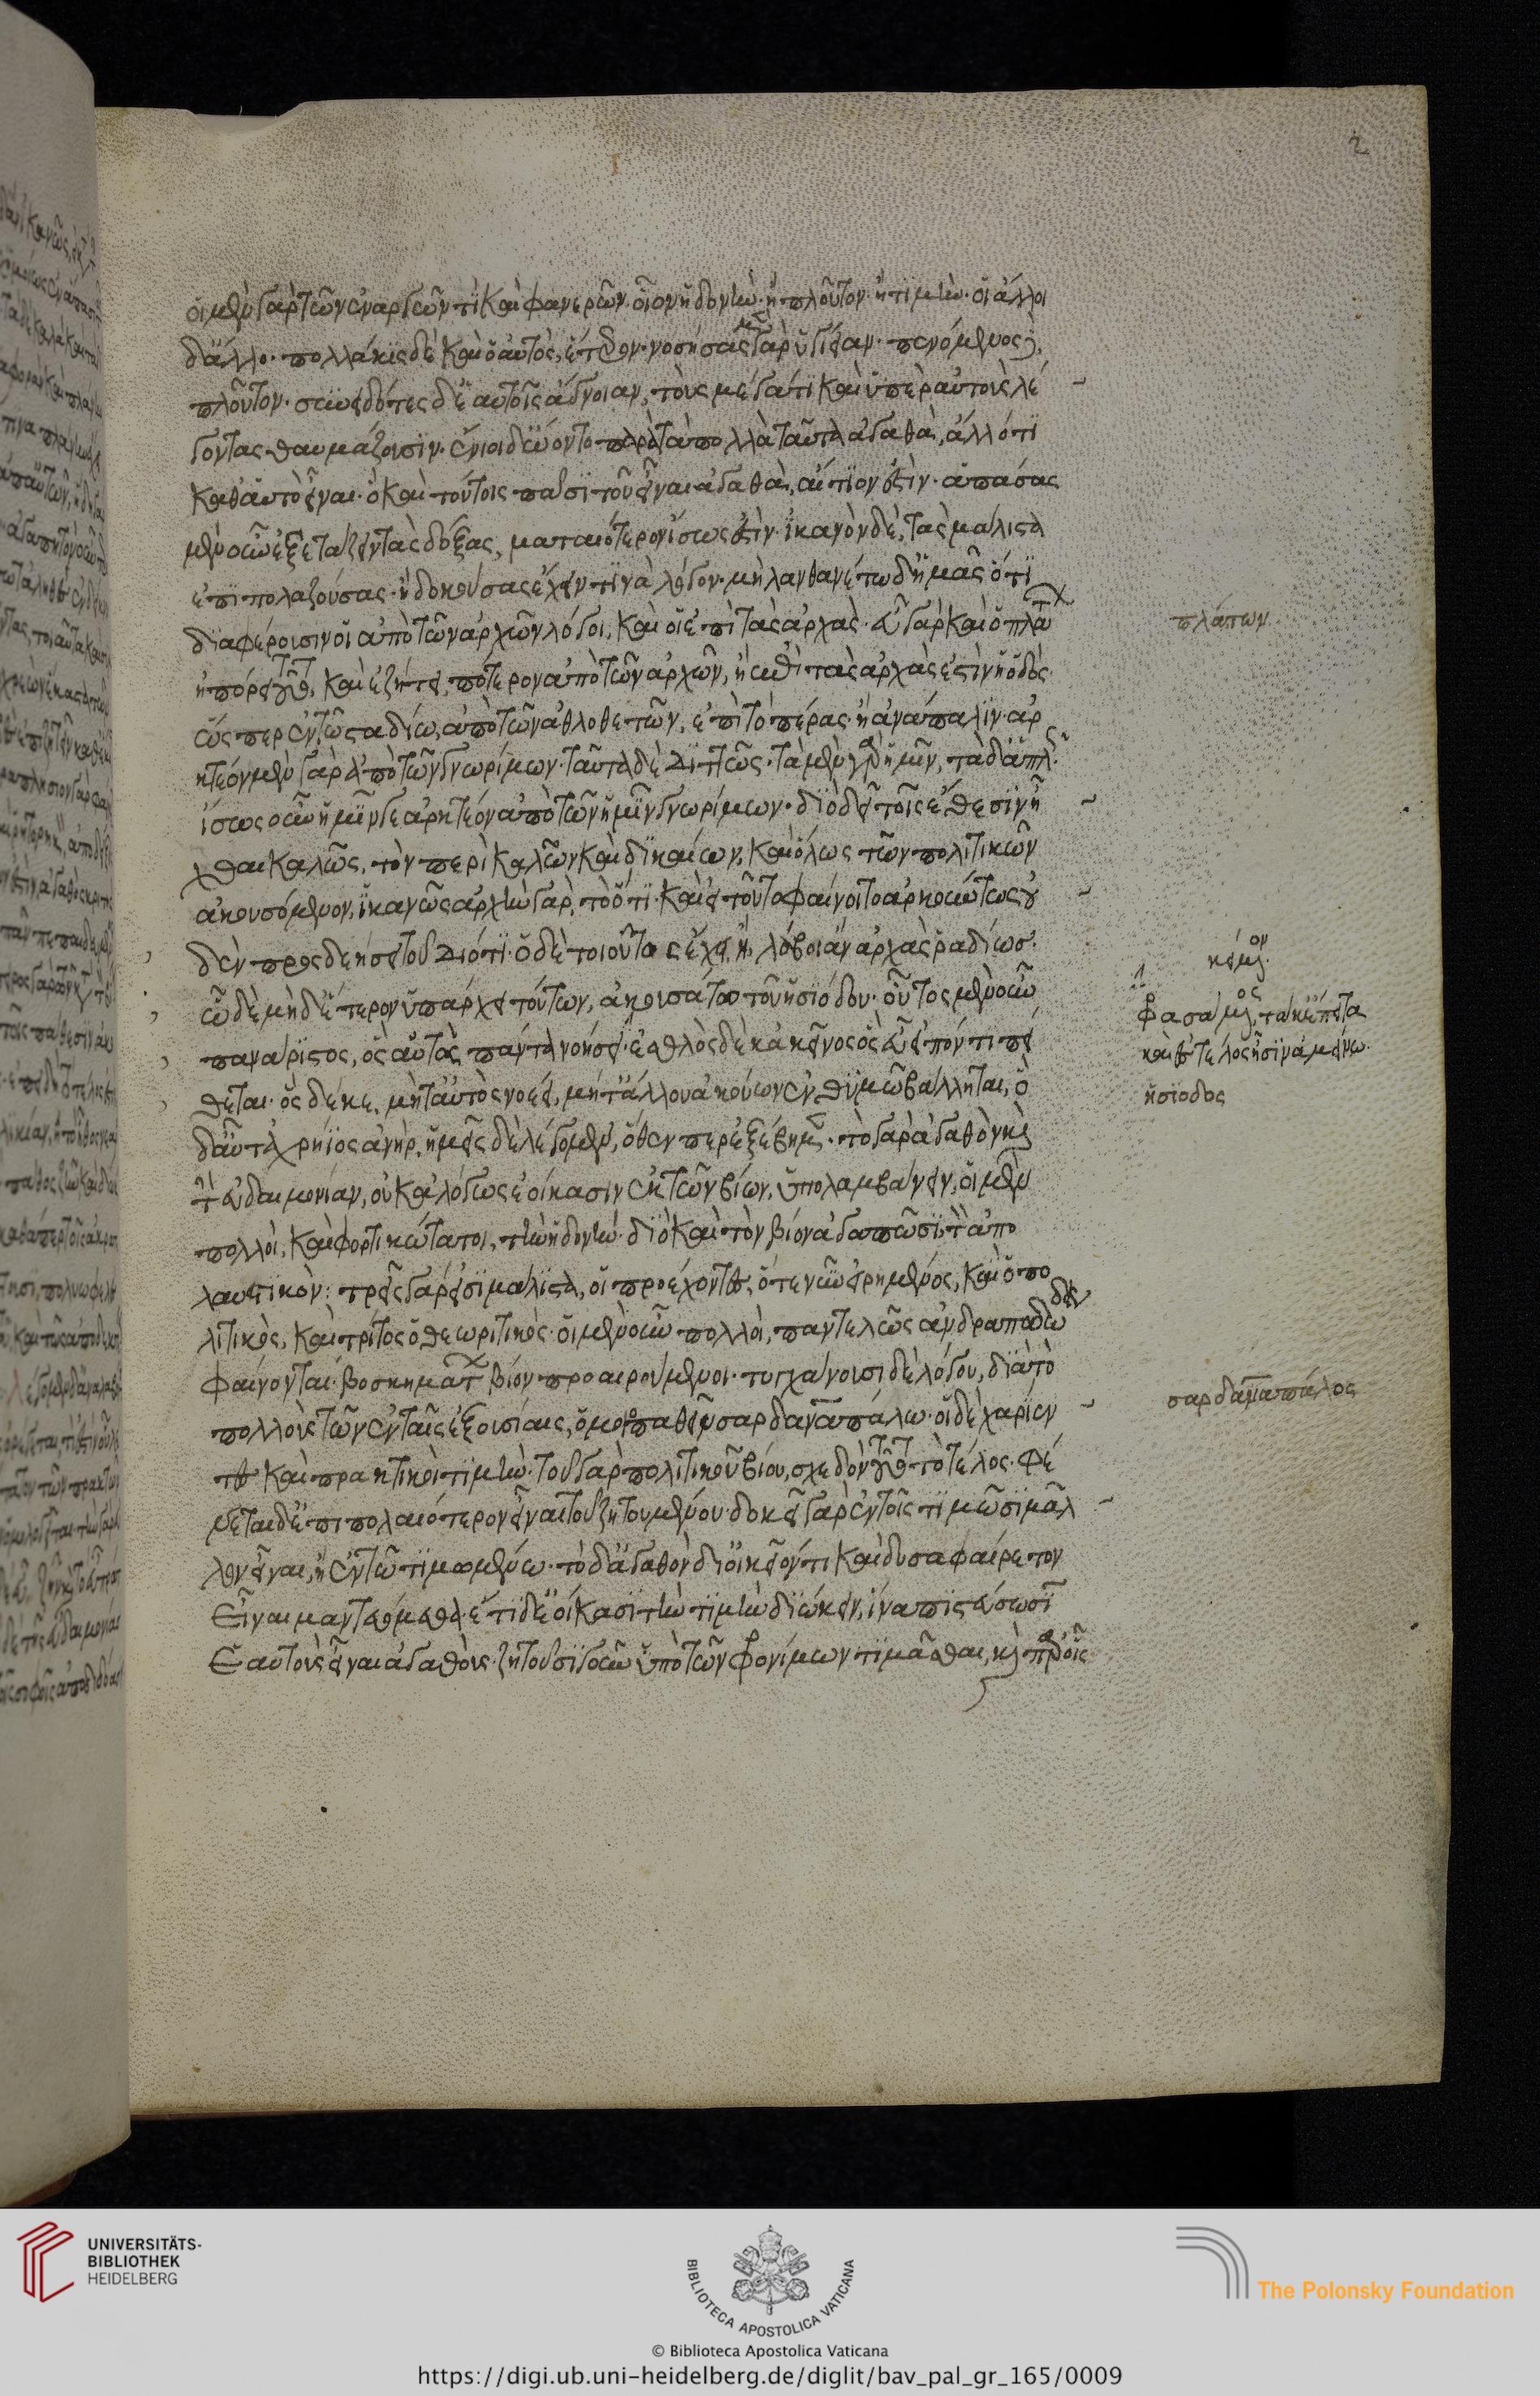 2
οἱ μὲν γὰρ τῶν ἐναργῶν τι καὶ φανερῶν. οἷον ἡδονὴν. ἢ πλοῦτον. ἢ τιμὴν. οἱ ἄλλοι
δ᾽ ἄλλο. πολλάκις δὲ καὶ ὁ αὐτὸς, ἕτερον. νοσήσας μὲν γὰρ ὑγίειαν. πενόμενος δὲ,
πλοῦτον. συνειδότες δ᾽ ἑαυτοῖς ἄγνοιαν, τοὺς μέγα τι καὶ ὑπὲρ αὐτοὺς λέ
γοντας θαυμάζουσιν. ἔνιοι δ᾽ ὤοντο παρὰ τὰ πολλὰ ταῦτα ἀγαθὰ, ἄλλό τι
καθ᾽ αὑτὸ εἶναι. ὃ καὶ τούτοις πᾶσι τοῦ εἶναι ἀγαθὰ, αἴτιον ἐστίν. ἁπάσας
μὲν οὖν ἐξετάζειν τὰς δόξας, ματαιότερον ἴσως ἐστίν. ἱκανὸν δὲ, τὰς μάλιστα
ἐπιπολαζούσας. ἢ δοκούσας ἔχειν τινὰ λόγον. μὴ λανθανέτω δ᾽ ἡμᾶς ὅτι
διαφέρουσιν οἱ ἀπὸ τῶν ἀρχῶν λόγοι, καὶ οἱ ἐπὶ τὰς ἀρχάς. εὖ γὰρ καὶ ὁ πλάτων
ἠπόρει τοῦτο, καὶ ἐζήτει, πότερον ἀπὸ τῶν ἀρχῶν, ἢ ἐπὶ τὰς ἀρχὰς ἐστὶν ἡ ὁδὸς.
ὥσπερ ἐν τῷ σταδίῳ, ἀπὸ τῶν ἀθλοθετῶν, ἐπὶ τὸ πέρας. ἢ ἀνάπαλιν. ἀρ
κτέον μὲν γὰρ ἀπὸ τῶν γνωρίμων. ταῦτα δὲ διττῶς. τὰ μὲν γὰρ ἡμῖν, τὰ δ᾽ ἁπλῶς.
ἴσως οὖν ἡμῖν γε ἀρκτέον ἀπὸ τῶν ἡμῖν γνωρίμων. διὸ δεῖ τοῖς ἔθεσιν ἦ
χθαι καλῶς, τὸν περὶ καλῶν καὶ δικαίων, καὶ ὅλως τῶν πολιτικῶν
ἀκουσόμενον, ἱκανῶς ἀρχὴ γὰρ, τὸ ὅτι. καὶ εἰ τοῦτο φαίνοιτο ἀρκούντως οὐ
δὲν προσδεήσει τοῦ διότι. ὁ δὲ τοιοῦτος ἔχει, ἢ λάβοι ἂν ἀρχὰς ῥαδίως.
ᾧ δὲ μηδέτερον ὑπάρχει τούτων, ἀκουσάτω τοῦ ἡσιόδου. οὗτος μὲν οὖν
πανάριστος, ὃς αὐτὸς πάντα νοήσει. ἐσθλὸς δὲ κἀκεῖνος ὃς εὖ εἰπόντι πεί
θεται. ὃς δέ κε, μήτ᾽ αὐτὸς νοέει, μήτ᾽ ἄλλου ἀκούων ἐν θυμῷ βάλληται, ὃ
δ᾽ αὖτ᾽ ἀχρήϊος ἀνὴρ, ἡμεῖς δὲ λέγομεν, ὅθεν παρεξέβημεν. τὸ γὰρ ἀγαθὸν καὶ
τὴν εὐδαιμονίαν, οὐκ ἀλόγως ἐοίκασιν ἐκ τῶν βίων, ὑπολαμβάνειν, οἱ μὲν
πολλοὶ, καὶ φορτικώτατοι, τὴν ἡδονήν. διὸ καὶ τὸν βίον ἀγαπῶσι τὸν ἀπο
λαυστικόν: τρεῖς γάρ εἰσι μάλιστα, οἱ προέχοντες, ὅ τε νῦν εἰρημένος, καὶ ὁ πο
λιτικὸς, καὶ τρίτος ὁ θεωρητικός. οἱ μὲν οὖν πολλοὶ, παντελῶς ἀνδραποδώδεις
φαίνονται. βοσκημάτων βίον προαιρούμενοι. τυγχάνουσι δὲ λόγου, διὰ τὸ
πολλοὺς τῶν ἐν ταῖς ἐξουσίαις, ὁμοιοπαθεῖν σαρδαναπάλω. οἱ δὲ χαρίεν
τες καὶ πρακτικοὶ τιμήν. τοῦ γὰρ πολιτικοῦ βίου, σχεδὸν τοῦτο τὸ τέλος. φαί
νεται δ᾽ ἐπιπολαιότερον εἶναι τοῦ ζητουμένου. δοκεῖ γὰρ ἐν τοῖς τιμῶσι μᾶλ
λον εἶναι, ἢ ἐν τῷ τιμωμένῳ. τὸ δ᾽ ἀγαθὸν οἰκεῖόν τι καὶ δυσαφαίρετον
εἶναι μαντευόμεθα. ἔτι δ᾽ ἐοίκασι τὴν τιμὴν διώκειν, ἵνα πιστεύσωσιν
ἑαυτοὺς εἶναι ἀγαθούς. ζητοῦσι γοῦν ὑπὸ τῶν φρονίμων τιμᾶσθαι, καὶ παρ᾽ οἷς
πλάτων
κείμενον
φρασσάμενος, τά κ᾽ ἔπειτα
καὶ ἐς τέλος ᾖσιν ἀμείνω.
ἡσίοδος
σαρδαναπάλος
UNIVERSITÄTS-
BIBLIOTHEK
HEIDELBERG
BIBLIOTECA APOSTOLICA VATICANA
The Polonsky Foundation
© Biblioteca Apostolica Vaticana
https://digi.ub.uni-heidelberg.de/diglit/bav_pal_gr_165/0009